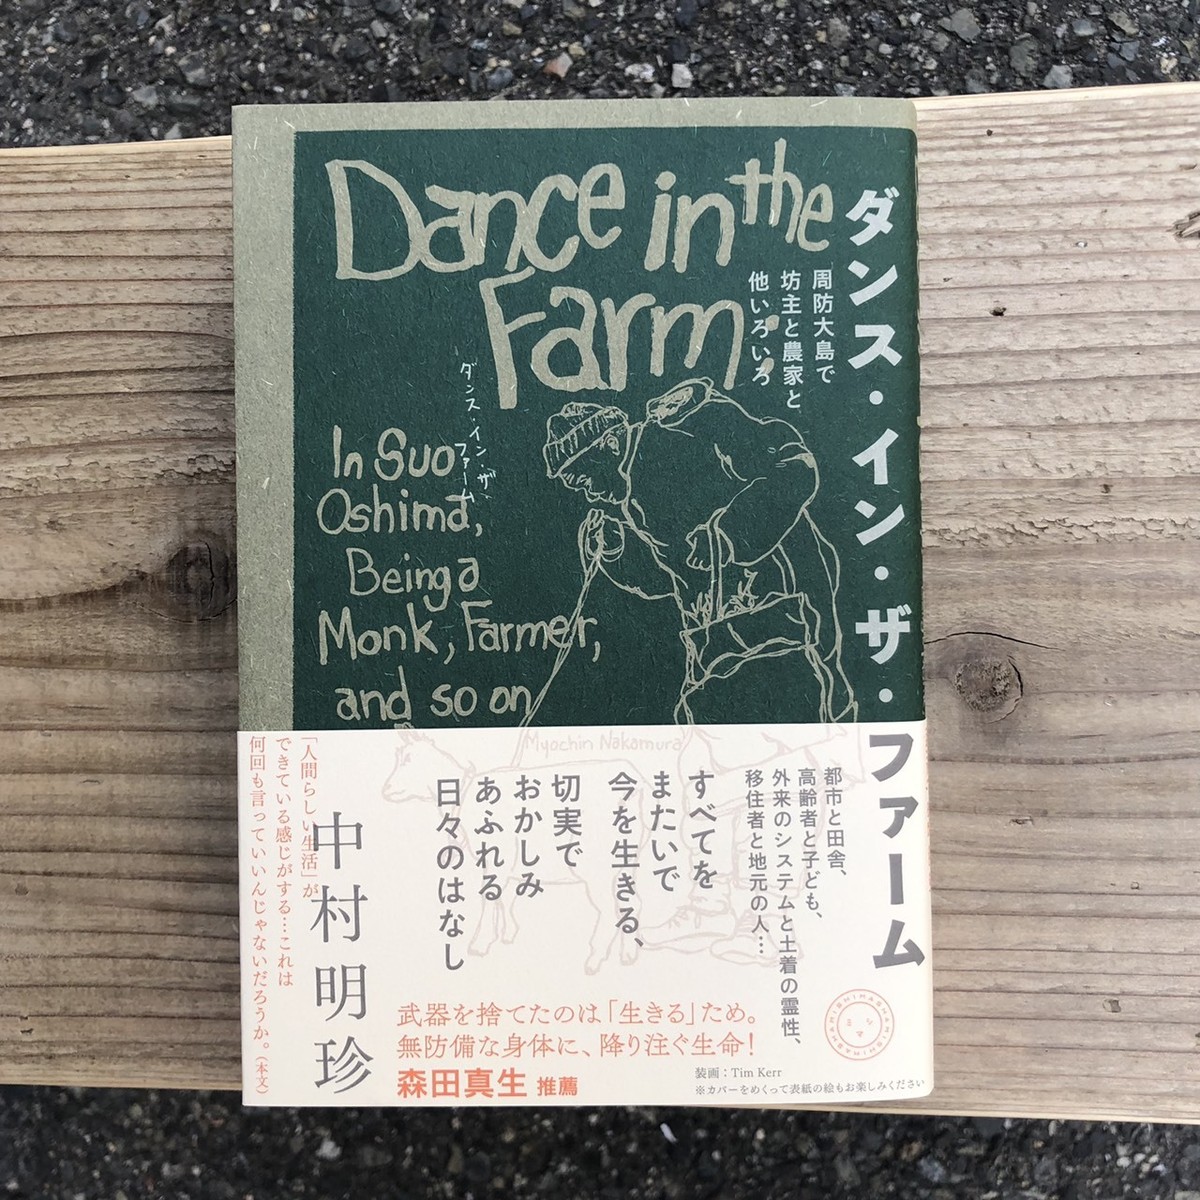 Dance in the
Farm:
ダンス・イン・ザ・ファーム
周防大島で
坊主と農家と
他いろいろ
ダンス・イン・ザ・
ファーム
In Suo
Oshima,
Being a
Monk, Farmer,
and so on
Myochin Nakamura
都市と田舎、
高齢者と子ども、
外来のシステムと土着の霊性、
移住者と地元の人…
すべてを
またいで
今を生きる、
切実で
おかしみ
あふれる
日々のはなし
中村明珍
「人間らしい生活」が
できている感じがする…これは
何回も言っていいんじゃないだろうか。(本文)
武器を捨てたのは「生きる」ため。
無防備な身体に、降り注ぐ生命!
森田真生 推薦
装画:Tim Kerr
※カバーをめくって表紙の絵もお楽しみください